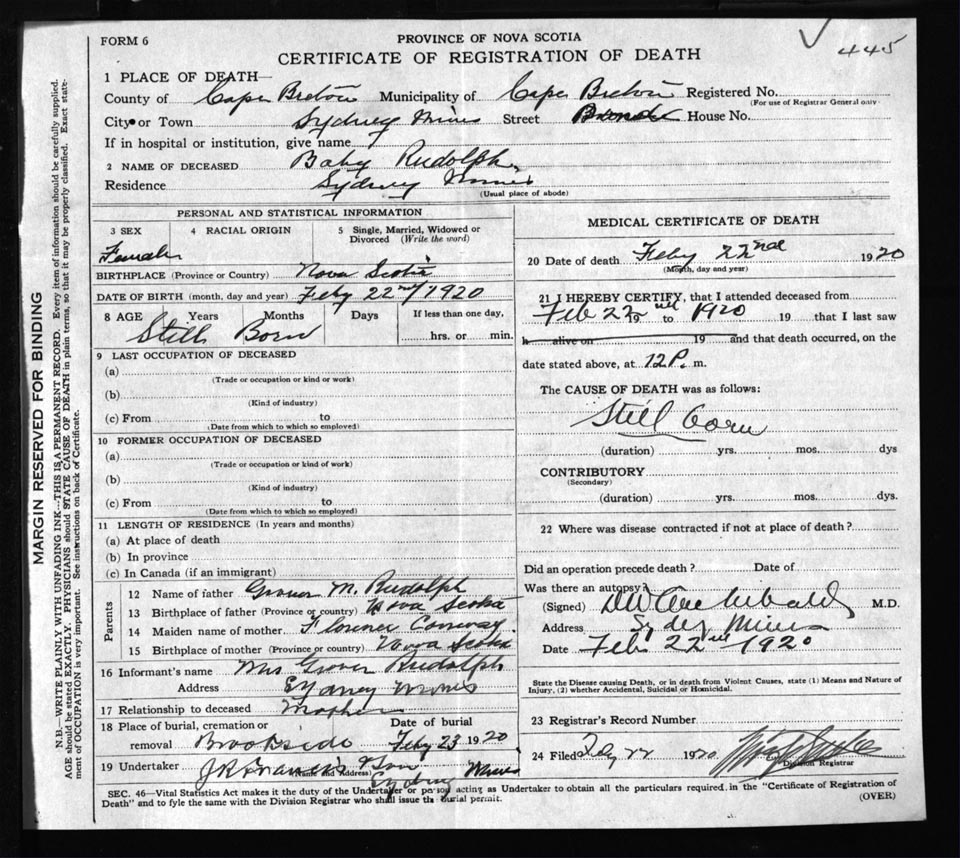 FORM 6
PROVINCE OF NOVA SCOTIA
445
CERTIFICATE OF REGISTRATION OF DEATH
1 PLACE OF DEATH—
County of Cape Breton Municipality of Cape Breton Registered No.
(For use of Registrar General only
City or Town Sydney Mines Street House No.
If in hospital or institution, give name
2 NAME OF DECEASED Baby Rudolph
Residence Sydney Mines
(Usual place of abode)
PERSONAL AND STATISTICAL INFORMATION
3 SEX 4 RACIAL ORIGIN 5 Single, Married, Widowed or Divorced (Write the word)
Female
BIRTHPLACE (Province or Country) Nova Scotia
DATE OF BIRTH (month, day and year) Feby 22nd/1920
8 AGE Years Months Days If less than one day,
Still Born hrs. or min.
9 LAST OCCUPATION OF DECEASED
(a)
(Trade or occupation or kind or work)
(b)
(Kind of industry)
(c) From to
(Date from which to which so employed)
10 FORMER OCCUPATION OF DECEASED
(a)
(Trade or occupation or kind of work)
(b)
(Kind of industry)
(c) From to
(Date from which to which so employed)
11 LENGTH OF RESIDENCE (In years and months)
(a) At place of death
(b) In province
(c) In Canada (if an immigrant)
Parents
12 Name of father Grover M. Rudolph
13 Birthplace of father (Province or country) Nova Scotia
14 Maiden name of mother Florence Conway
15 Birthplace of mother (Province or country) Nova Scotia
16 Informant's name Mrs Grover Rudolph
Address Sydney Mines
17 Relationship to deceased Mother
18 Place of burial, cremation or Date of burial
removal Brookside Feby 23 1920
19 Undertaker J R Francis & Son
(Name and Address) Sydney Mines
MEDICAL CERTIFICATE OF DEATH
20 Date of death Feby 22nd 1920
(Month, day and year)
21 I HEREBY CERTIFY, that I attended deceased from
Feb 22nd 19 to 1920 19 that I last saw
h alive on 19 and that death occurred, on the
date stated above, at 12 P. m.
The CAUSE OF DEATH was as follows:
Still born
(duration) yrs. mos. dys
CONTRIBUTORY
(Secondary)
(duration) yrs. mos. dys.
22 Where was disease contracted if not at place of death?
Did an operation precede death? Date of
Was there an autopsy?
(Signed) Archibald M.D.
Address Sydney Mines
Date Feb 22nd 1920
State the Disease causing Death, or in death from Violent Causes, state (1) Means and Nature of
Injury, (2) whether Accidental, Suicidal or Homicidal.
23 Registrar's Record Number
24 Filed Feby 22 1920
Division Registrar
SEC. 46—Vital Statistics Act makes it the duty of the Undertaker or person acting as Undertaker to obtain all the particulars required in the "Certificate of Registration of
Death" and to fyle the same with the Division Registrar who shall issue the burial permit.
(OVER)
MARGIN RESERVED FOR BINDING
N.B.—WRITE PLAINLY WITH UNFADING INK—THIS IS A PERMANENT RECORD. Every item of information should be carefully supplied.
AGE should be stated EXACTLY. PHYSICIANS should STATE CAUSE OF DEATH in plain terms, so that it may be properly classified. Exact state-
ment of OCCUPATION is very important. See instructions on back of Certificate.